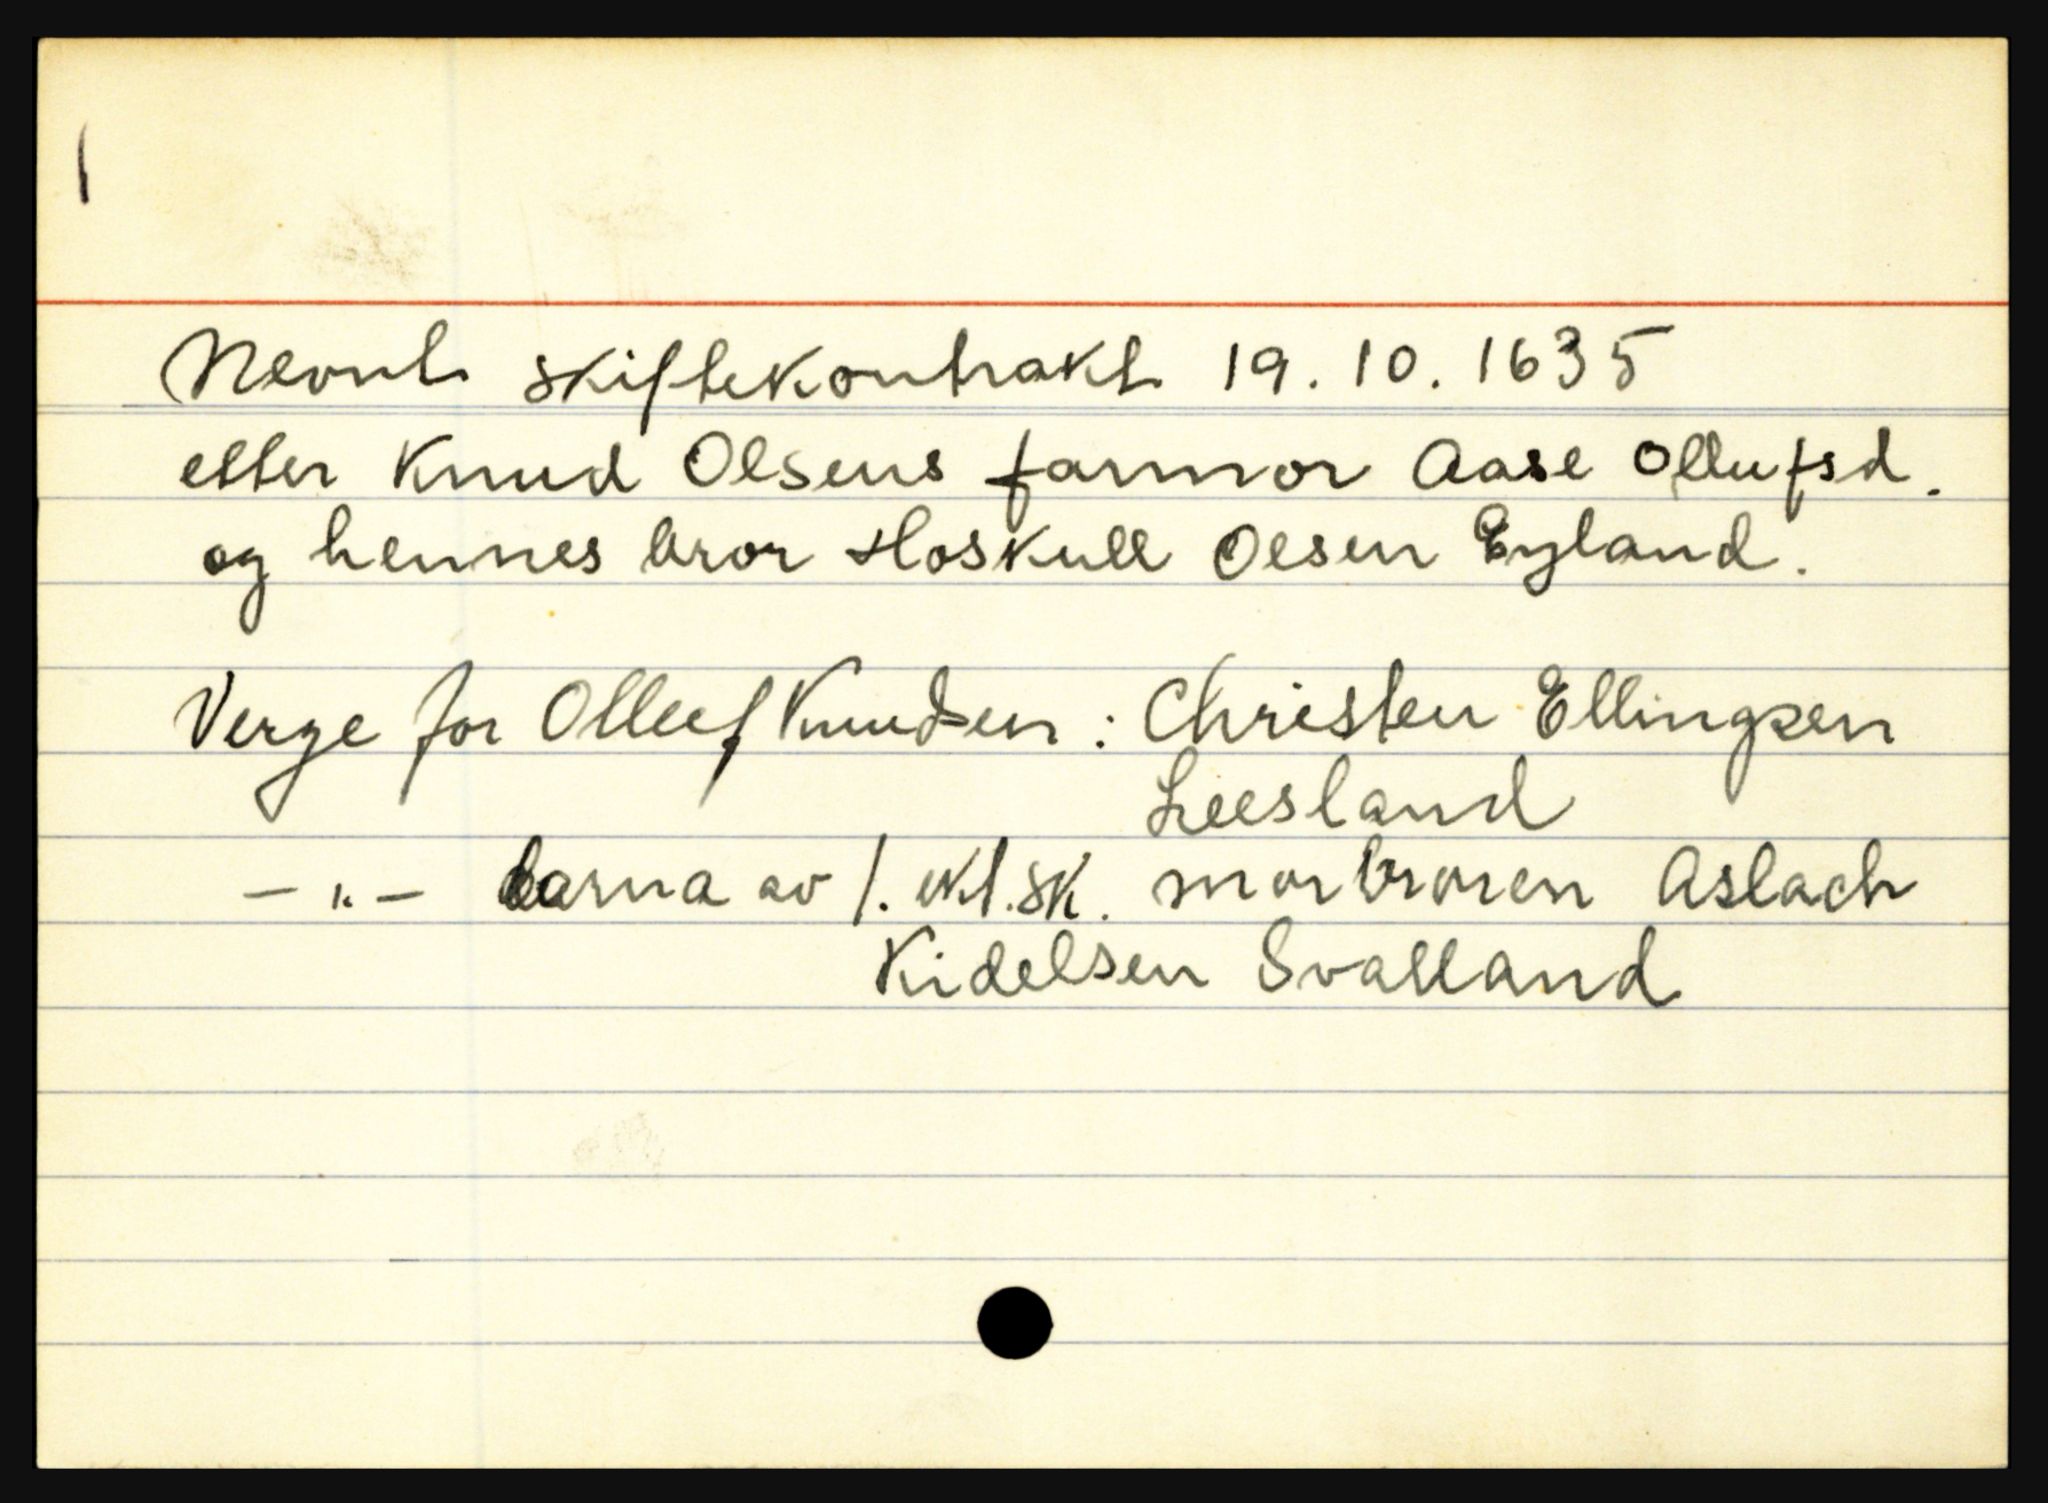 Nevnt skiftekontrakt 19.10.1635
etter Knud Olsens farmor Aase Ollufsd.
og hennes bror Hoskull Olsen Eyland.
Verge for Olluf Knudsen: Christen Ellingsen
Leesland
- " - barna av 1. ekt.sk. morbroren Aslach
Kidelsen Svalland